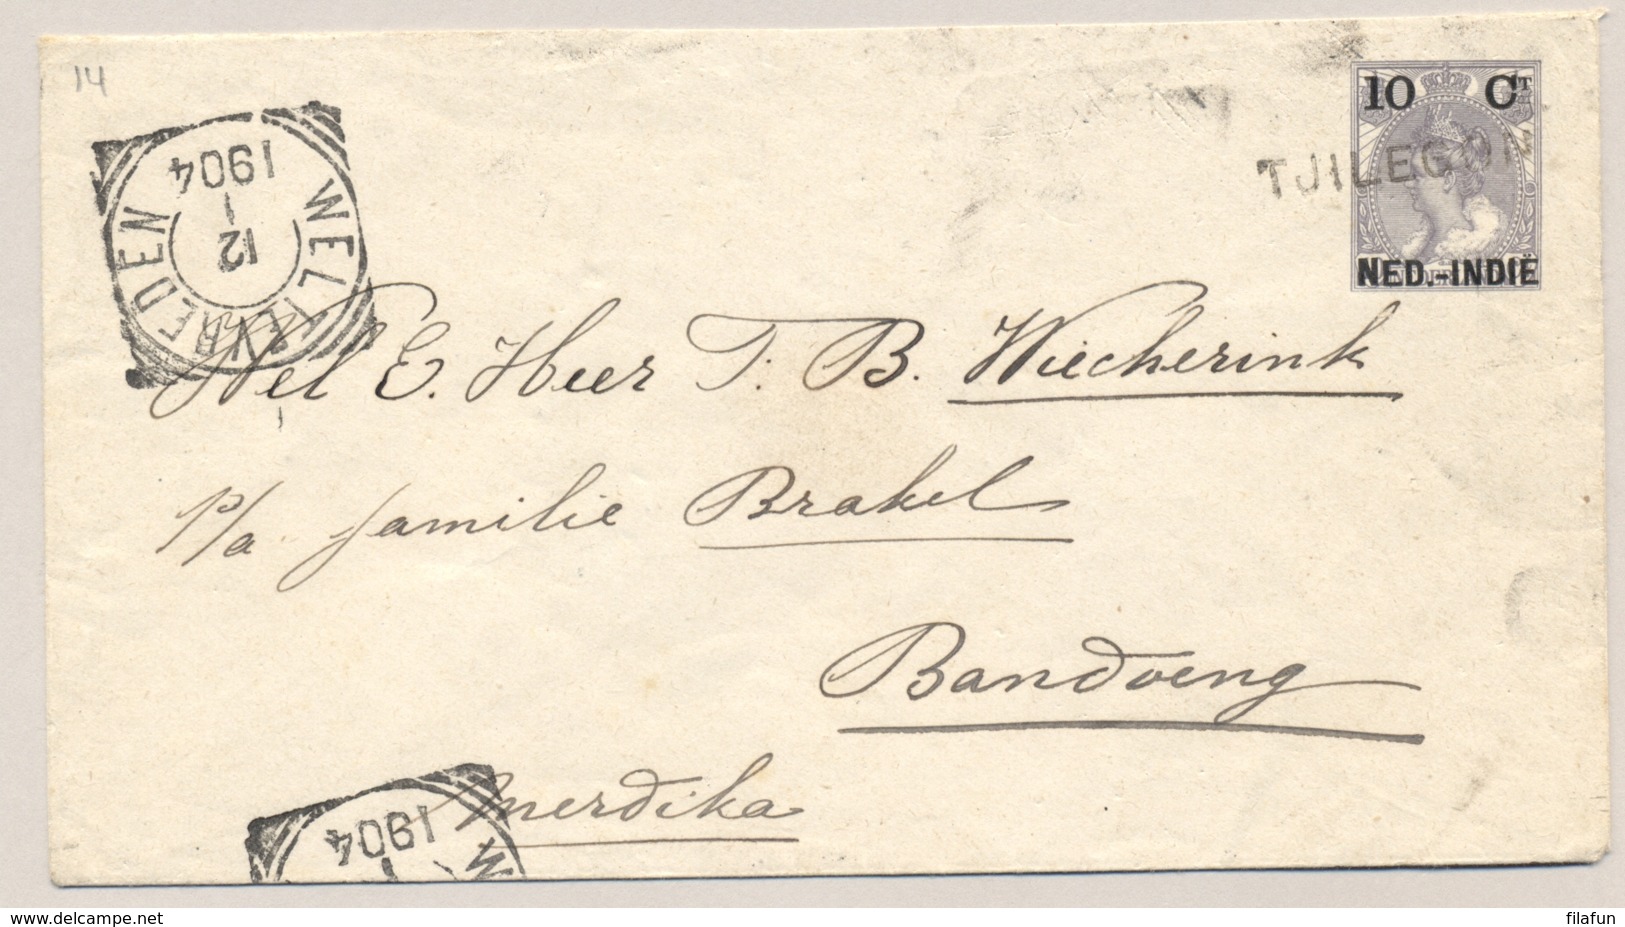 14
WELTEVREDEN
12
1
1904
10 CT
TJILEGON
NED.-INDIË
Wel E. Heer T. B. Wiecherink
p/a familie Brakel
Bandoeng
merdika
W
1
1904
www.delcampe.net
filafun